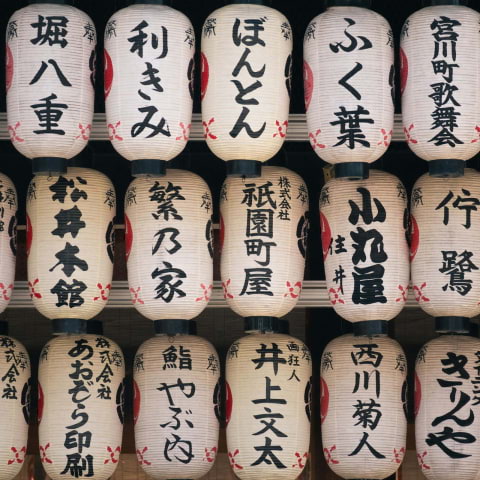 堀八重
利きみ
ぼんとん
ふく葉
宮川町歌舞会
松井本館
繁乃家
株式会社
祇園町屋
小丸屋
住井
佇鷺
株式会社
株式会社
あおぞら印刷
鮨
やぶ内
画狂人
井上文太
西川菊人
きりんや